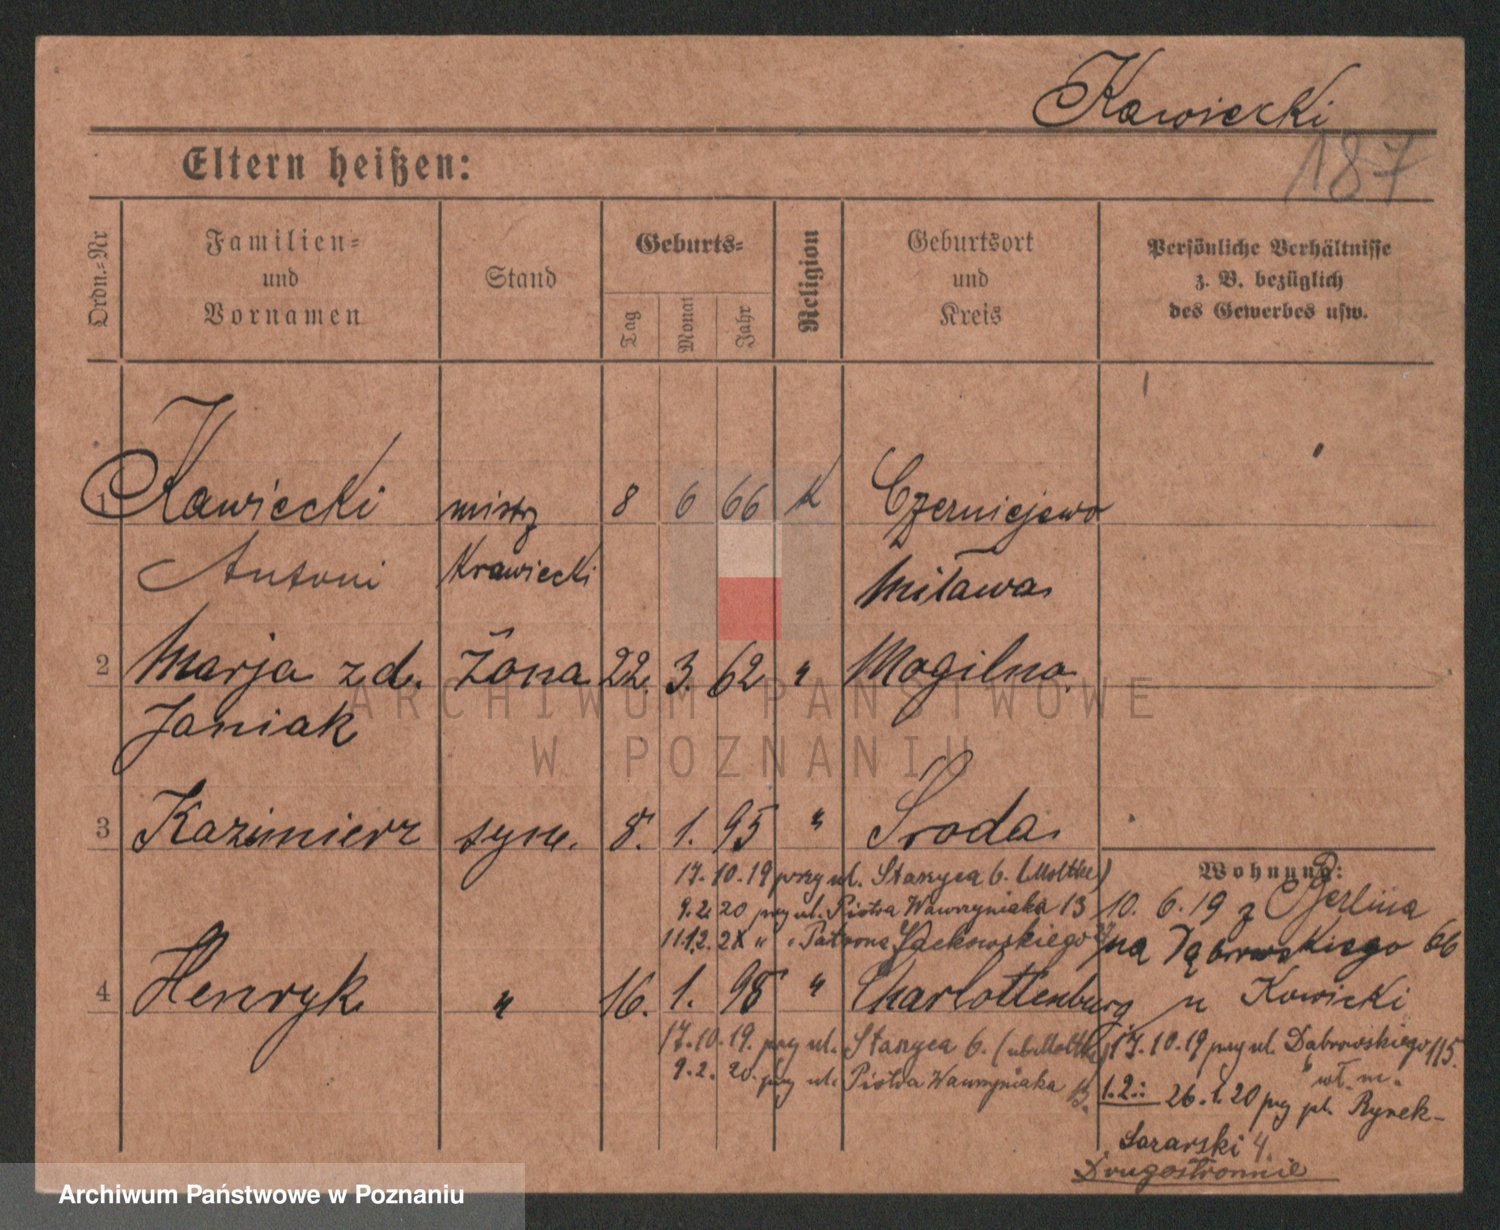 Kawiecki
187
Eltern heißen:
Ordn.-Nr
Familien-
und
Vornamen
Stand
Geburts-
Tag
Monat
Jahr
Religion
Geburtsort
und
Kreis
Persönliche Verhältnisse
z. B. bezüglich
des Gewerbes usw.
1 Kawiecki mistrz 8 6 66 K Czerniejewo
Antoni Krawiecki Miława
2 Marja z d. Żona 22. 3. 62 " Mogilno
Janiak
3 Kazimierz syn. 8. 1. 95 " Środa
17.10.19 przy ul. Stanyca 6. (Moltke)
9.2.20 przy ul. Piotra Wawrzyniaka 13
" " Patrona Jackowskiego
4 Henryk " 16. 1. 98 " Charlottenburg
17.10.19. przy ul. Stanyca 6.
9.2.20. przy ul. Piotra Wawrzyniaka 13.
Wohnung:
10. 6. 19 z Berlina
na Dąbrowskiego 66
u Kawicki
17.10.19 przy ul. Dąbrowskiego 115.
wł. m.
1.2.: 26.1.20 przy pl. Rynek-
Łazarski 4.
Drugostronnie
ARCHIWUM PAŃSTWOWE
W POZNANIU
Archiwum Państwowe w Poznaniu